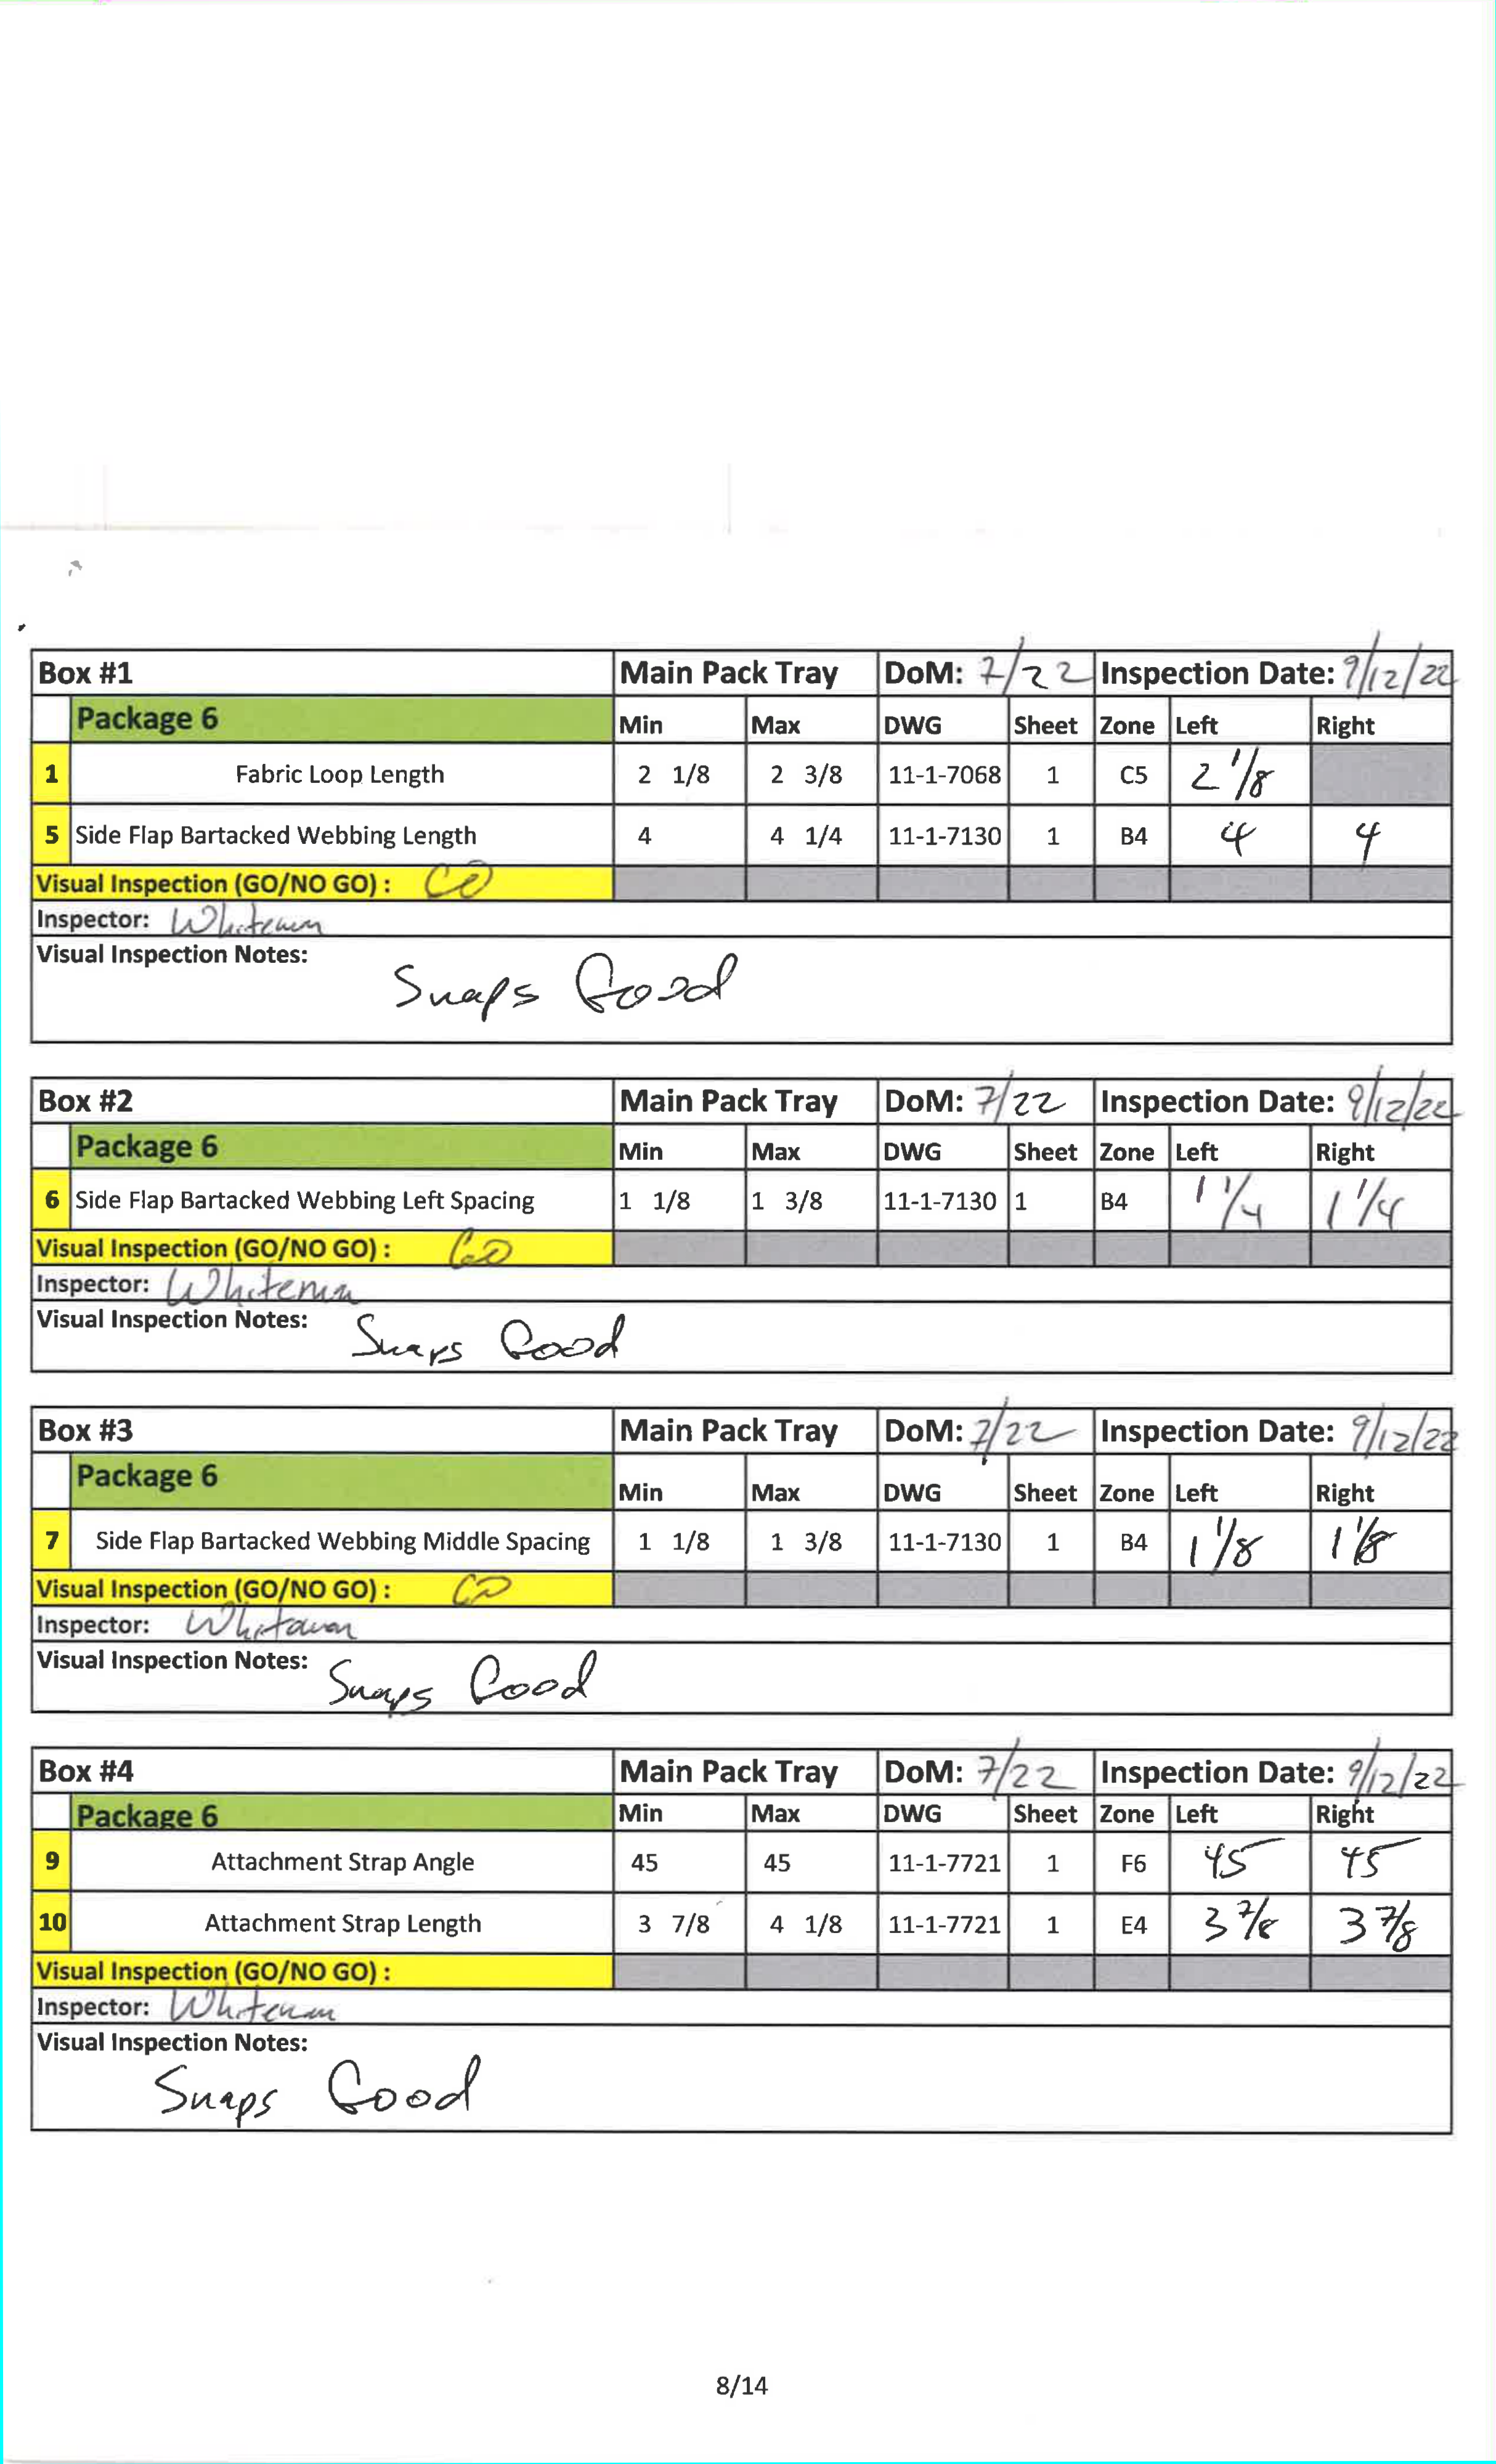 Box #1 Main Pack Tray DoM: 7/22 Inspection Date: 9/12/22
Package 6 Min Max DWG Sheet Zone Left Right
1 Fabric Loop Length 2 1/8 2 3/8 11-1-7068 1 C5 2 1/8
5 Side Flap Bartacked Webbing Length 4 4 1/4 11-1-7130 1 B4 4 4
Visual Inspection (GO/NO GO) : GO
Inspector: Whiteman
Visual Inspection Notes:
Snaps Good
Box #2 Main Pack Tray DoM: 7/22 Inspection Date: 9/12/22
Package 6 Min Max DWG Sheet Zone Left Right
6 Side Flap Bartacked Webbing Left Spacing 1 1/8 1 3/8 11-1-7130 1 B4 1 1/4 1 1/4
Visual Inspection (GO/NO GO) : GO
Inspector: Whiteman
Visual Inspection Notes: Snaps Good
Box #3 Main Pack Tray DoM: 7/22 Inspection Date: 9/12/22
Package 6 Min Max DWG Sheet Zone Left Right
7 Side Flap Bartacked Webbing Middle Spacing 1 1/8 1 3/8 11-1-7130 1 B4 1 1/8 1 1/8
Visual Inspection (GO/NO GO) : GO
Inspector: Whiteman
Visual Inspection Notes: Snaps Good
Box #4 Main Pack Tray DoM: 7/22 Inspection Date: 9/12/22
Package 6 Min Max DWG Sheet Zone Left Right
9 Attachment Strap Angle 45 45 11-1-7721 1 F6 45 45
10 Attachment Strap Length 3 7/8 4 1/8 11-1-7721 1 E4 3 7/8 3 7/8
Visual Inspection (GO/NO GO) :
Inspector: Whiteman
Visual Inspection Notes:
Snaps Good
8/14